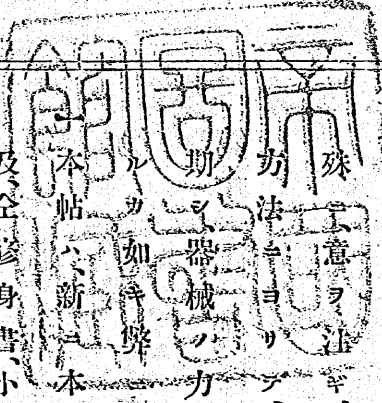 殊ニ、意ヲ注ギ
方法ニヨリテ
期シ、器械ノ力
ルガ如キ弊ニ
一本帖ハ、新ニ本
及、仝修身書、小